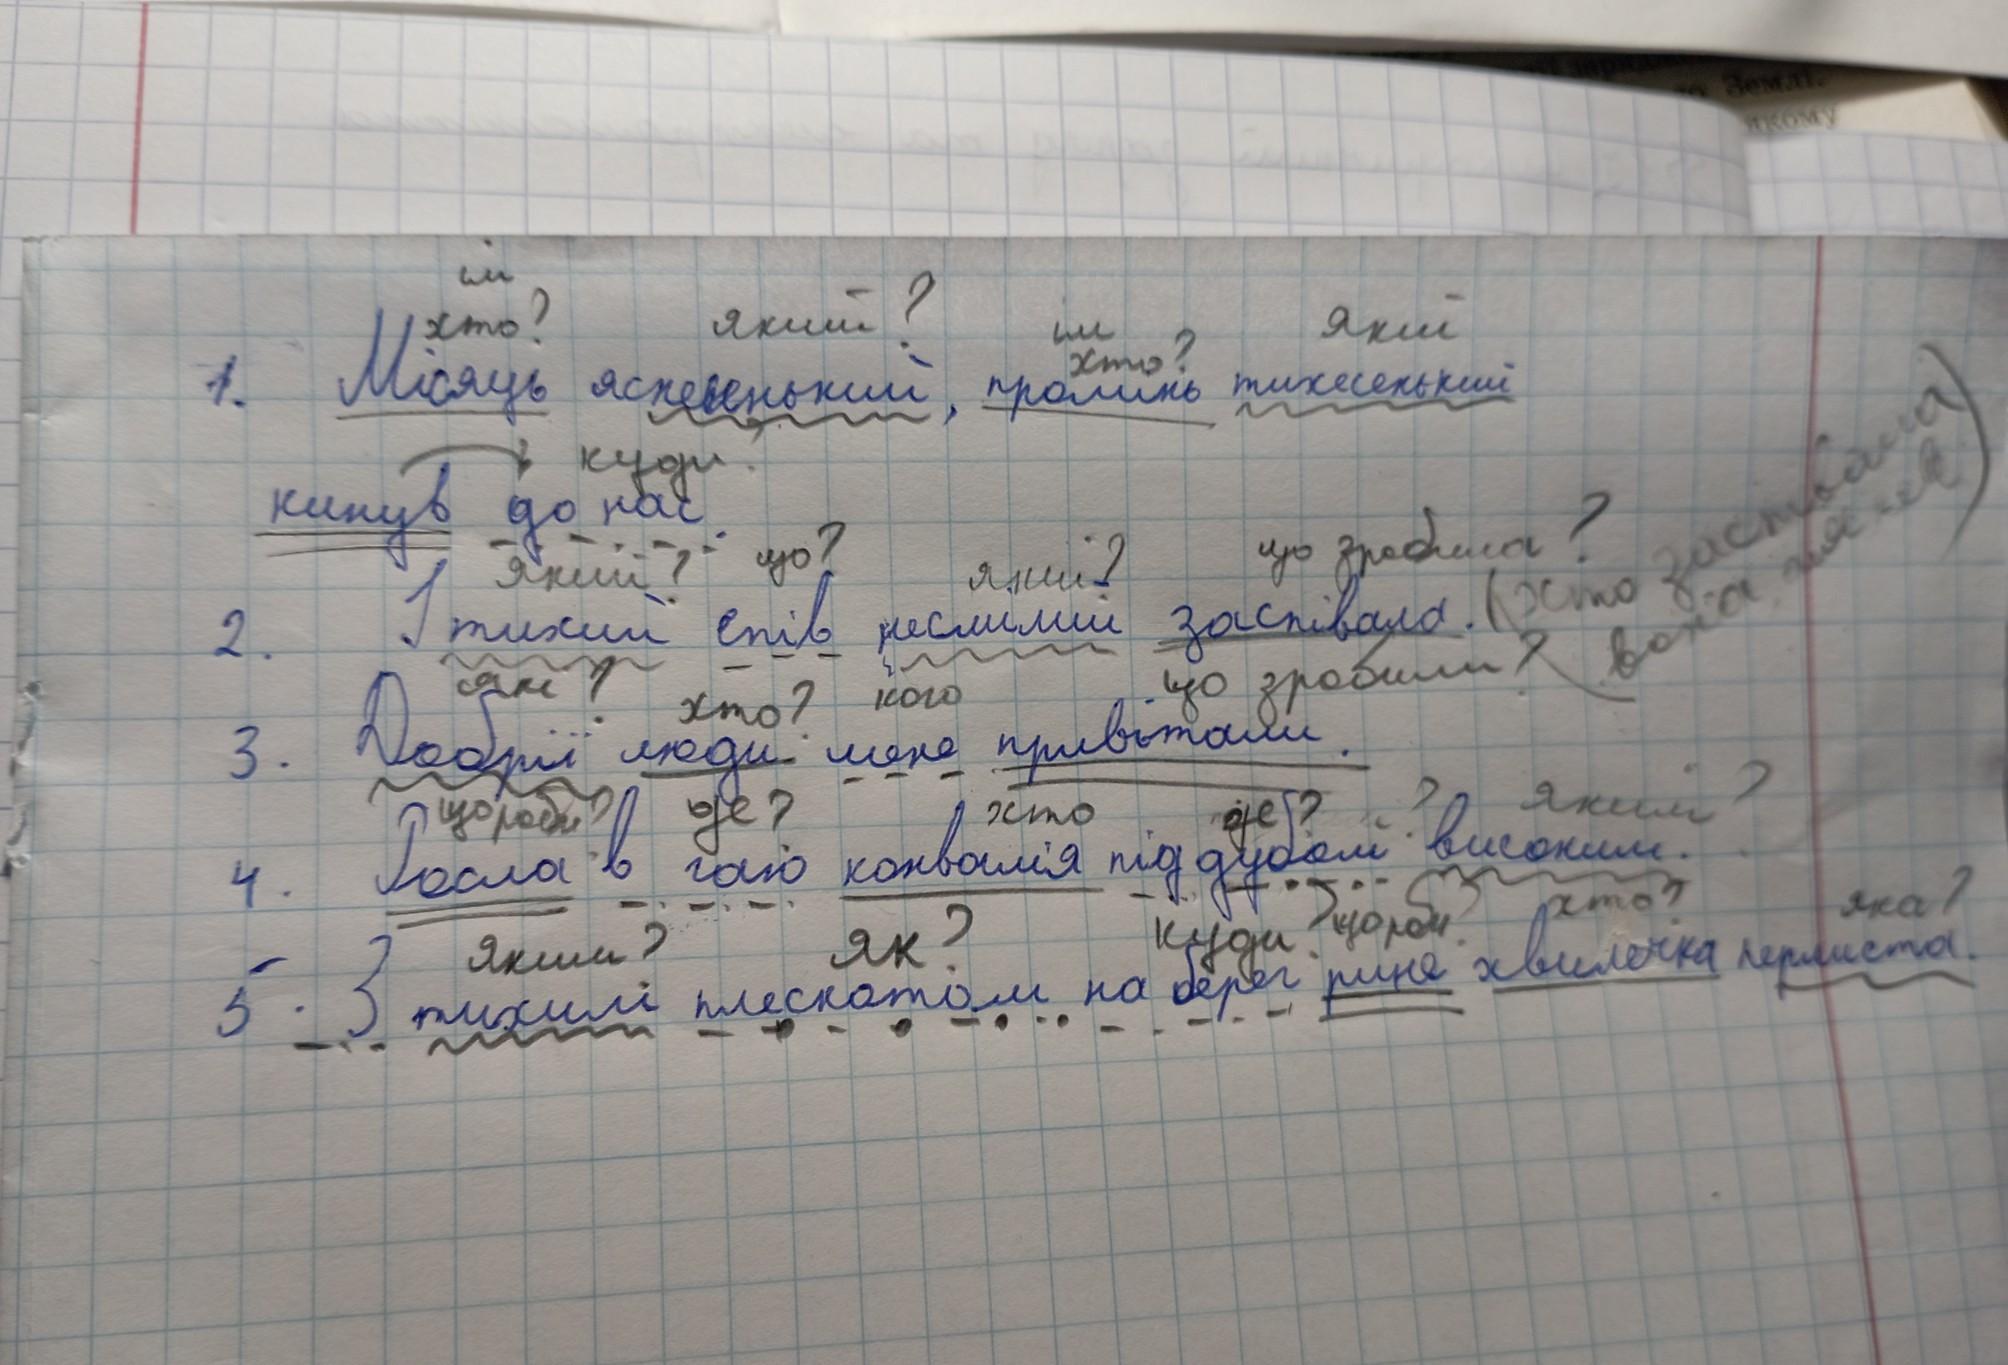 Землі.
якому
ім
хто? який? ім хто? якій
1. Місяць яснесенький, проминь тихесенький
куди?
кинув до нас.
який? що? який? що зробила? (хто заспівала
2. І тихий спів неслимий заспівала. вона
які? хто? кого що зробили?
3. Добрії люди мене привітали.
що роби? де? хто де? ? яким?
4. Росла в гаю конвалія під дубом високим.
яким? як? куди? що роби? хто? яка?
5. З тихим плескотом на берег рине хвилечка перлиста.